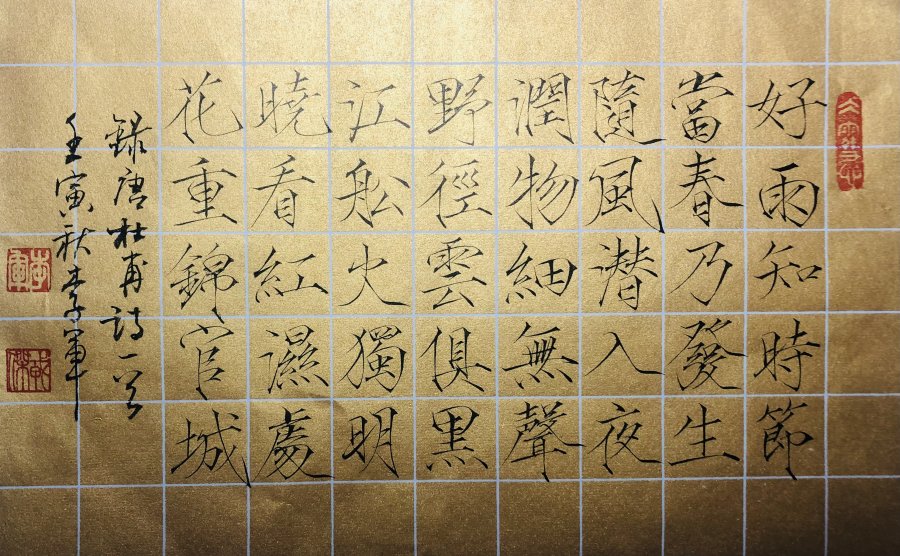 好雨知時節
當春乃發生
隨風潛入夜
潤物細無聲
野徑雲俱黑
江船火獨明
曉看紅濕處
花重錦官城
錄唐杜甫詩一首
壬寅秋李軍